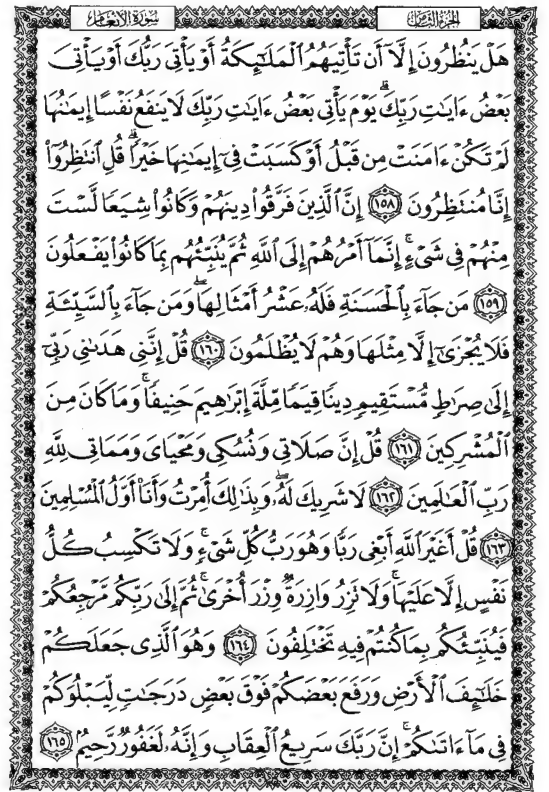 الجزء الثامن
سورة الأنعام
هَلْ يَنظُرُونَ إِلَّآ أَن تَأْتِيَهُمُ ٱلْمَلَٰٓئِكَةُ أَوْ يَأْتِىَ رَبُّكَ أَوْ يَأْتِىَ
بَعْضُ ءَايَٰتِ رَبِّكَۗ يَوْمَ يَأْتِى بَعْضُ ءَايَٰتِ رَبِّكَ لَا يَنفَعُ نَفْسًا إِيمَٰنُهَا
لَمْ تَكُنْ ءَامَنَتْ مِن قَبْلُ أَوْ كَسَبَتْ فِىٓ إِيمَٰنِهَا خَيْرًاۗ قُلِ ٱنتَظِرُوٓا۟
إِنَّا مُنتَظِرُونَ ١٥٨ إِنَّ ٱلَّذِينَ فَرَّقُوا۟ دِينَهُمْ وَكَانُوا۟ شِيَعًا لَّسْتَ
مِنْهُمْ فِى شَىْءٍۚ إِنَّمَآ أَمْرُهُمْ إِلَى ٱللَّهِ ثُمَّ يُنَبِّئُهُم بِمَا كَانُوا۟ يَفْعَلُونَ
١٥٩ مَن جَآءَ بِٱلْحَسَنَةِ فَلَهُۥ عَشْرُ أَمْثَالِهَاۖ وَمَن جَآءَ بِٱلسَّيِّئَةِ
فَلَا يُجْزَىٰٓ إِلَّا مِثْلَهَا وَهُمْ لَا يُظْلَمُونَ ١٦٠ قُلْ إِنَّنِى هَدَىٰنِى رَبِّىٓ
إِلَىٰ صِرَٰطٍ مُّسْتَقِيمٍ دِينًا قِيَمًا مِّلَّةَ إِبْرَٰهِيمَ حَنِيفًاۚ وَمَا كَانَ مِنَ
ٱلْمُشْرِكِينَ ١٦١ قُلْ إِنَّ صَلَاتِى وَنُسُكِى وَمَحْيَاىَ وَمَمَاتِى لِلَّهِ
رَبِّ ٱلْعَٰلَمِينَ ١٦٢ لَا شَرِيكَ لَهُۥۖ وَبِذَٰلِكَ أُمِرْتُ وَأَنَا۠ أَوَّلُ ٱلْمُسْلِمِينَ
١٦٣ قُلْ أَغَيْرَ ٱللَّهِ أَبْغِى رَبًّا وَهُوَ رَبُّ كُلِّ شَىْءٍۚ وَلَا تَكْسِبُ كُلُّ
نَفْسٍ إِلَّا عَلَيْهَاۚ وَلَا تَزِرُ وَازِرَةٌ وِزْرَ أُخْرَىٰۚ ثُمَّ إِلَىٰ رَبِّكُم مَّرْجِعُكُمْ
فَيُنَبِّئُكُم بِمَا كُنتُمْ فِيهِ تَخْتَلِفُونَ ١٦٤ وَهُوَ ٱلَّذِى جَعَلَكُمْ
خَلَٰٓئِفَ ٱلْأَرْضِ وَرَفَعَ بَعْضَكُمْ فَوْقَ بَعْضٍ دَرَجَٰتٍ لِّيَبْلُوَكُمْ
فِى مَآ ءَاتَىٰكُمْۗ إِنَّ رَبَّكَ سَرِيعُ ٱلْعِقَابِ وَإِنَّهُۥ لَغَفُورٌ رَّحِيمٌ ١٦٥